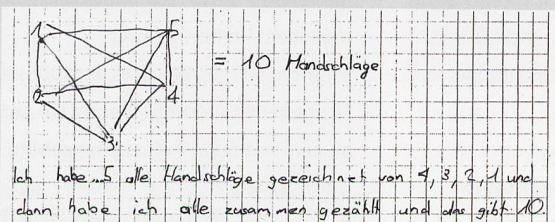 1 5
= 10 Handschläge
2 4
3
Ich habe..5 alle Handschläge gezeichnet von 4, 3, 2, 1 und
dann habe ich alle zusammen gezählt und das gibt 10